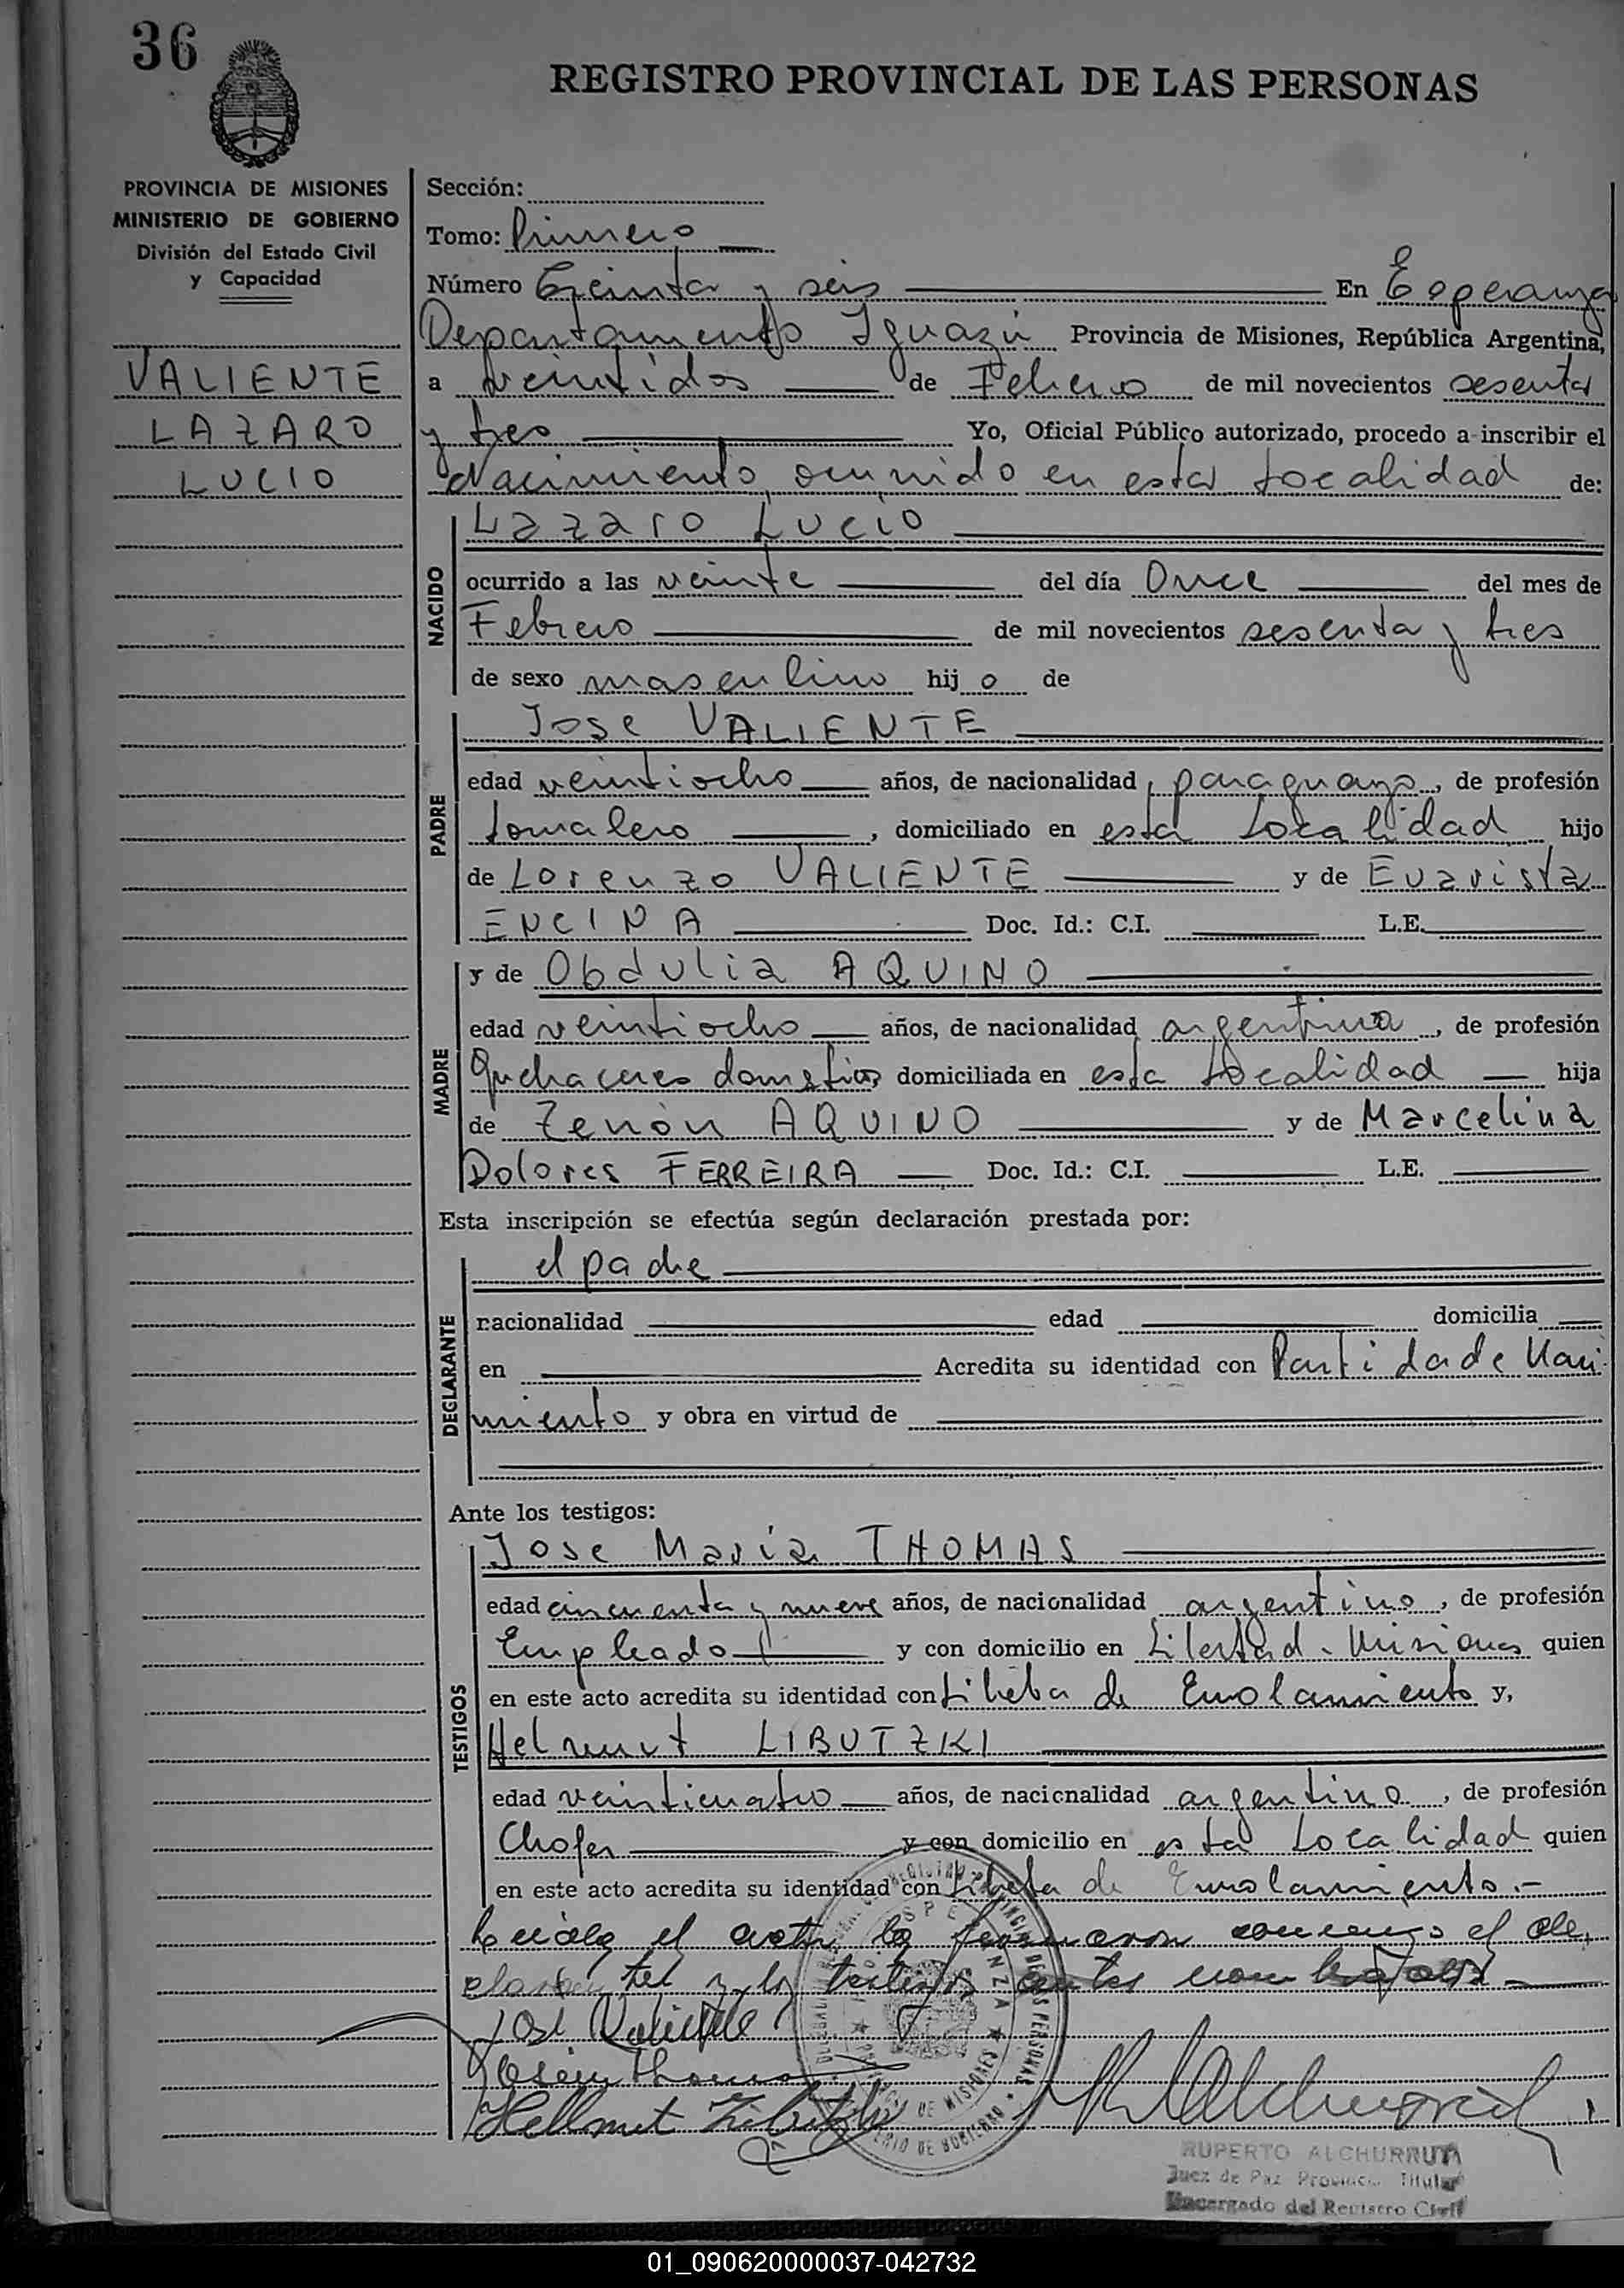 36
REGISTRO PROVINCIAL DE LAS PERSONAS
PROVINCIA DE MISIONES
MINISTERIO DE GOBIERNO
División del Estado Civil
y Capacidad
VALIENTE
LAZARO
LUCIO
Sección:
Tomo: Primero
Número Treinta y seis En Esperanza
Departamento Iguazú Provincia de Misiones, República Argentina,
a veintidos de Febrero de mil novecientos sesenta
y tres Yo, Oficial Público autorizado, procedo a inscribir el
Nacimiento ocurrido en esta Localidad de:
NACIDO
Lazaro Lucio
ocurrido a las veinte del día Once del mes de
Febrero de mil novecientos sesenta y tres
de sexo masculino hij o de
PADRE
Jose VALIENTE
edad veintiocho años, de nacionalidad paraguayo, de profesión
Jornalero, domiciliado en esta Localidad hijo
de Lorenzo VALIENTE y de Evarista
ENCINA Doc. Id.: C.I. L.E.
MADRE
y de Obdulia AQUINO
edad veintiocho años, de nacionalidad argentina, de profesión
Quehaceres domsticos domiciliada en esta Localidad hija
de Zenón AQUINO y de Marcelina
Dolores FERREIRA Doc. Id.: C.I. L.E.
Esta inscripción se efectúa según declaración prestada por:
DECLARANTE
el padre
nacionalidad edad domicilia
en Acredita su identidad con Partida de Naci
miento y obra en virtud de
Ante los testigos:
TESTIGOS
Jose Maria THOMAS
edad cincuenta y nueve años, de nacionalidad argentino, de profesión
Empleado y con domicilio en Libertad - Misiones quien
en este acto acredita su identidad con Libreta de Enrolamiento y,
Helmut LIBUTZKI
edad veinticuatro años, de nacionalidad argentino, de profesión
Chofer y con domicilio en esta Localidad quien
en este acto acredita su identidad con Libreta de Enrolamiento.-
Leida el acta la firmaron conmigo el de
clarante y los testigos antes nombrados
José Valiente
José M Thomas
Hellmut Libutzki
RUPERTO ALCHURRUT
Juez de Paz Provincial Titular
Encargado del Registro Civil
01_090620000037-042732